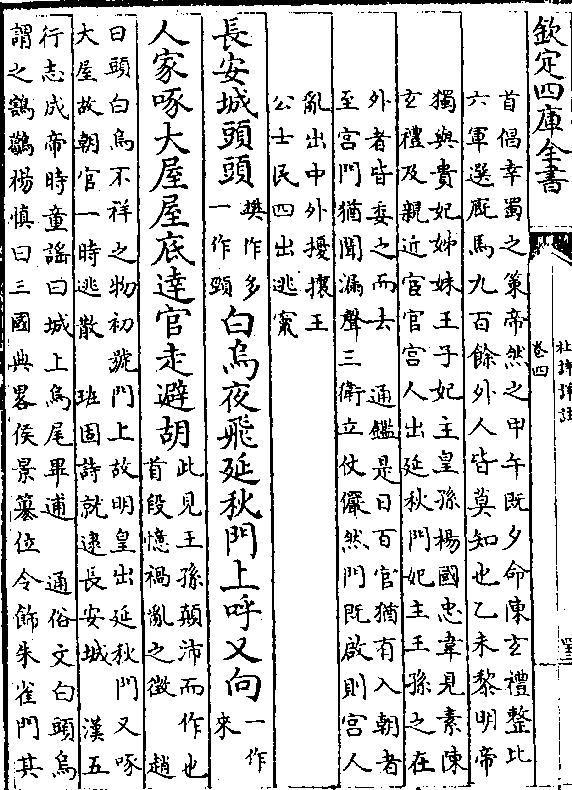 欽定四庫全書
杜詩詳註
卷四
首倡幸蜀之策帝然之甲午既夕命陳玄禮整比
六軍選厩馬九百餘外人皆莫知也乙未黎明帝
獨與貴妃姊妹王子妃主皇孫楊國忠韋見素陳
玄禮及親近宦官宮人出延秋門妃主王孫之在
外者皆委之而去　通鑑是日百官猶有入朝者
至宮門猶聞漏聲三衛立仗儼然門既啟則宮人
亂出中外擾攘王
公士民四出逃竄
長安城頭頭樊作多一作頸白烏夜飛延秋門上呼又向一作來
人家啄大屋屋底達官走避胡此見王孫顛沛而作也首段憶禍亂之徵　趙
曰頭白烏不祥之物初號門上故明皇出延秋門又啄
大屋故朝官一時逃散　班固詩就逮長安城　漢五
行志成帝時童謠曰城上烏尾畢逋　通俗文白頭烏
謂之鶷鶡楊慎曰三國典畧侯景簒位令飾朱雀門其